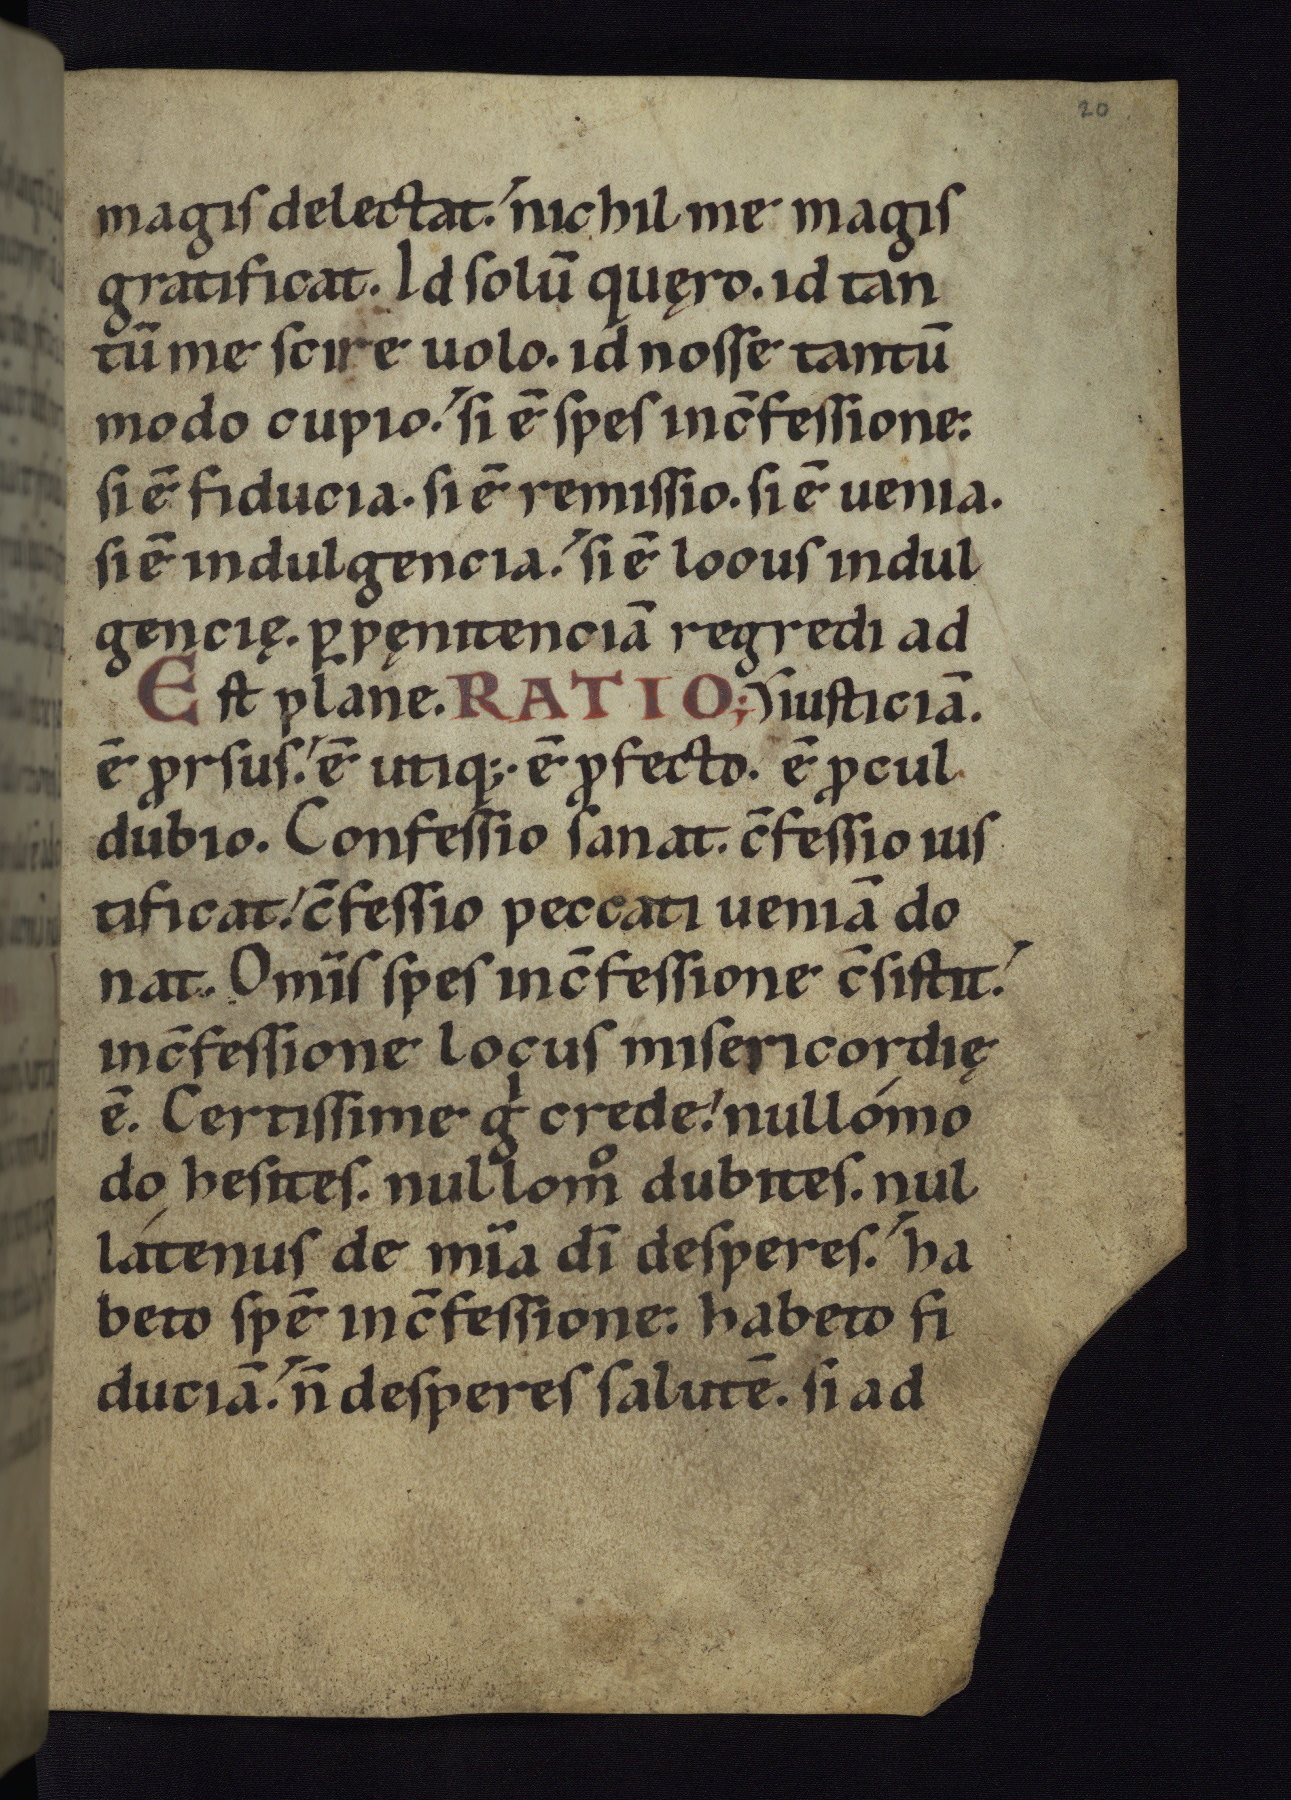 20
magis delectat. nichil me magis
gratificat. Id solū quęro. id tan
tū me scire uolo. id nosse tantū
modo cupio. si ē spes inc̄fessione:
si ē fiducia. si ē remissio. si ē uenia.
si ē indulgencia. si ē locus indul
gencię. ꝑ pęnitenciā regredi ad
Est plane. RATIO; iusticiā.
ē ꝓrsus. ē utiq;. ē ꝓfecto. ē ꝓcul
dubio. Confessio sanat. c̄fessio ius
tificat. c̄fessio peccati ueniā do
nat. Om̄is spes inc̄fessione c̄sistit.
inc̄fessione locus misericordię
ē. Certissime gͥ crede. nullómo
do hesites. nullomº dubites. nul
látenus de mīa dī desperes. ha
beto spē inc̄fessione: habeto fi
duciā. n̄ desperes salutē. si ad